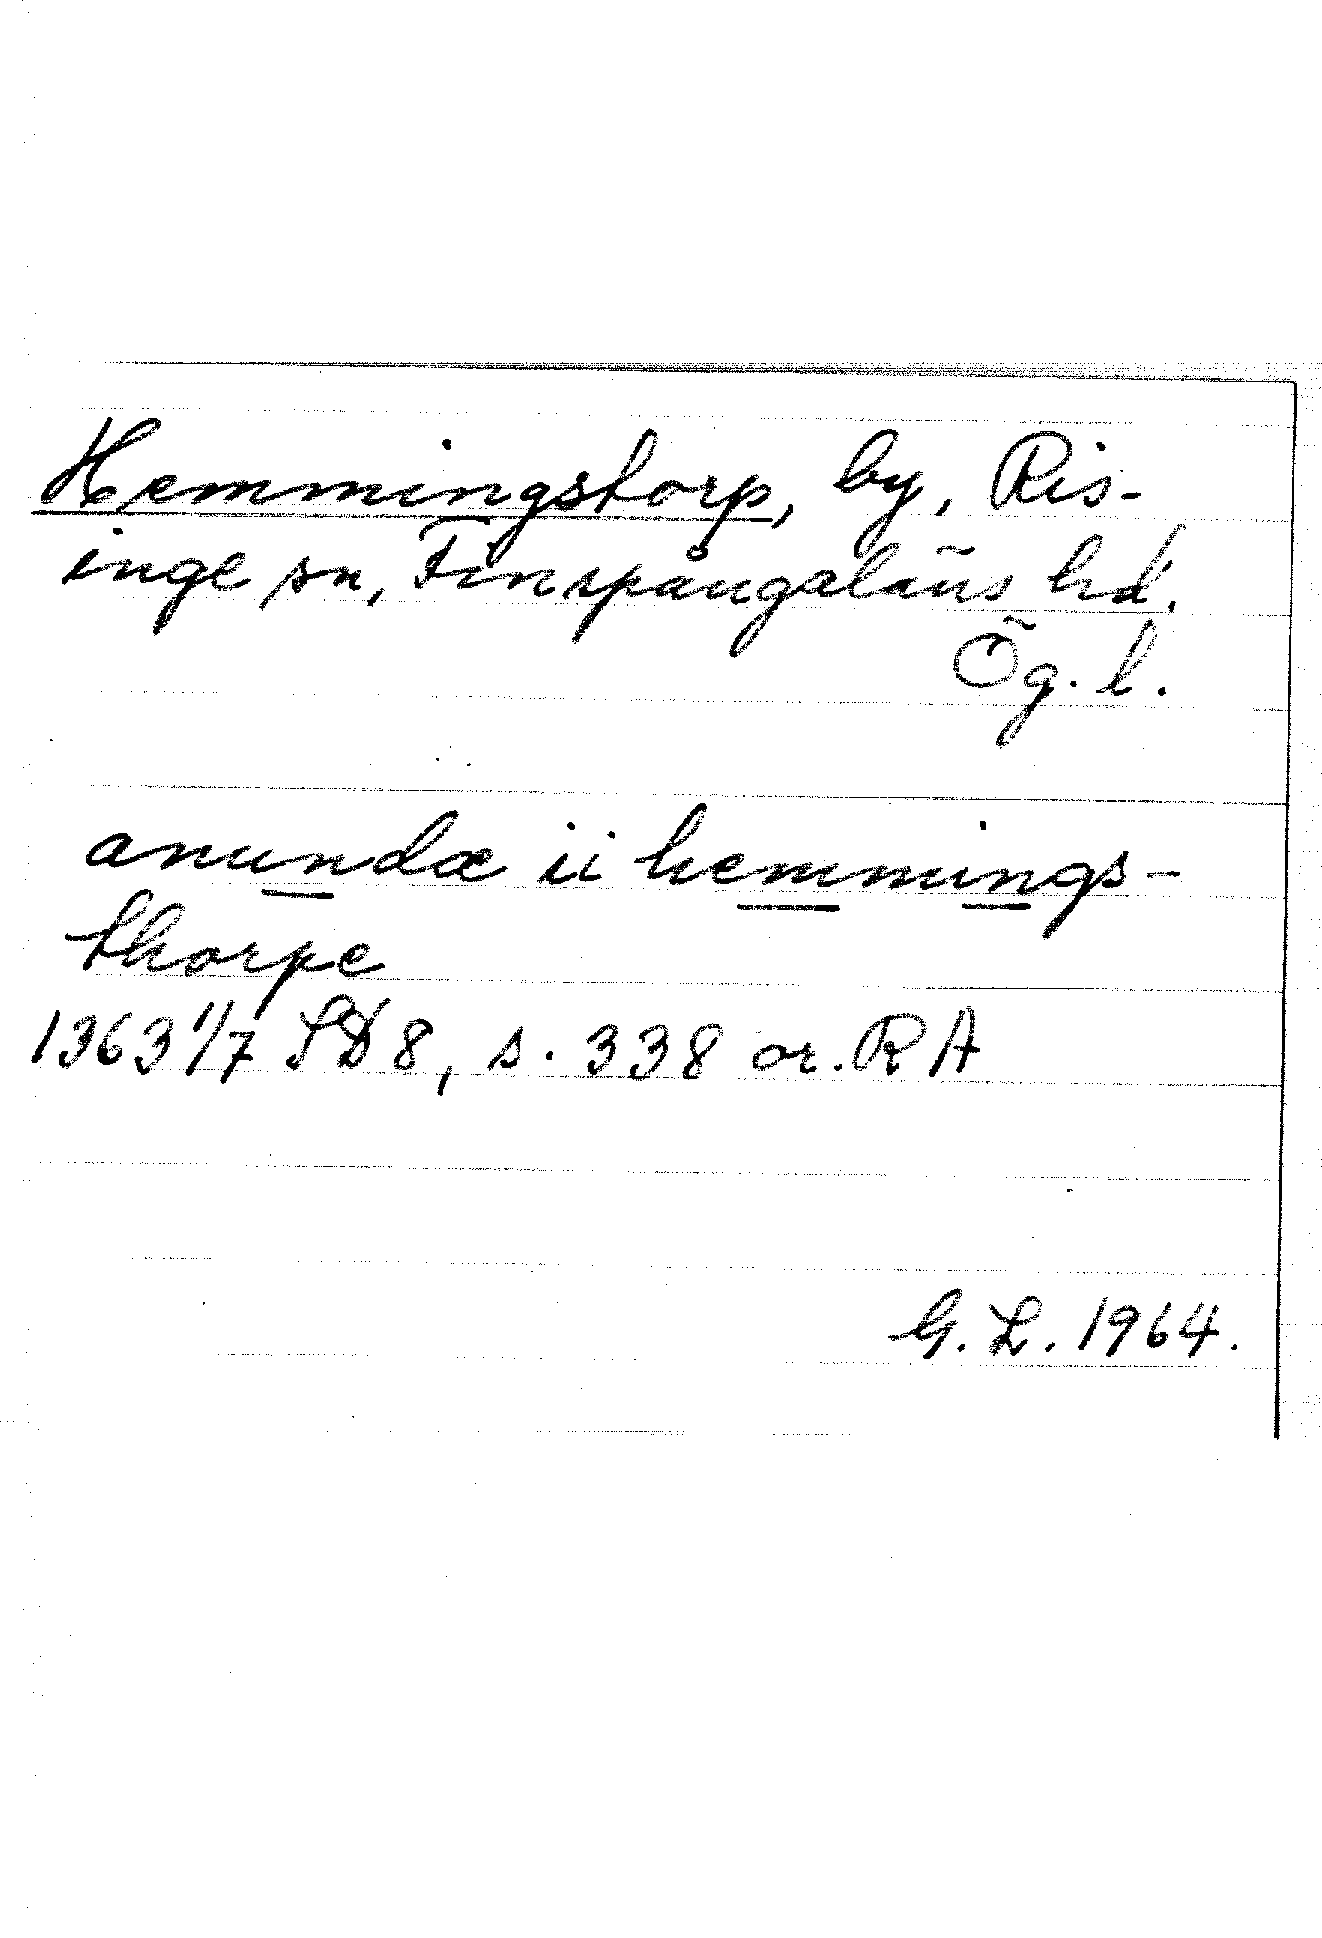 Hemmingstorp, by, Ris-
inge sn, Finspångaläns hd.
Ög. l.
anundæ ii hemmings-
thorpe
1363 1/7 SD 8, s. 338 or. RA
G. L. 1964.